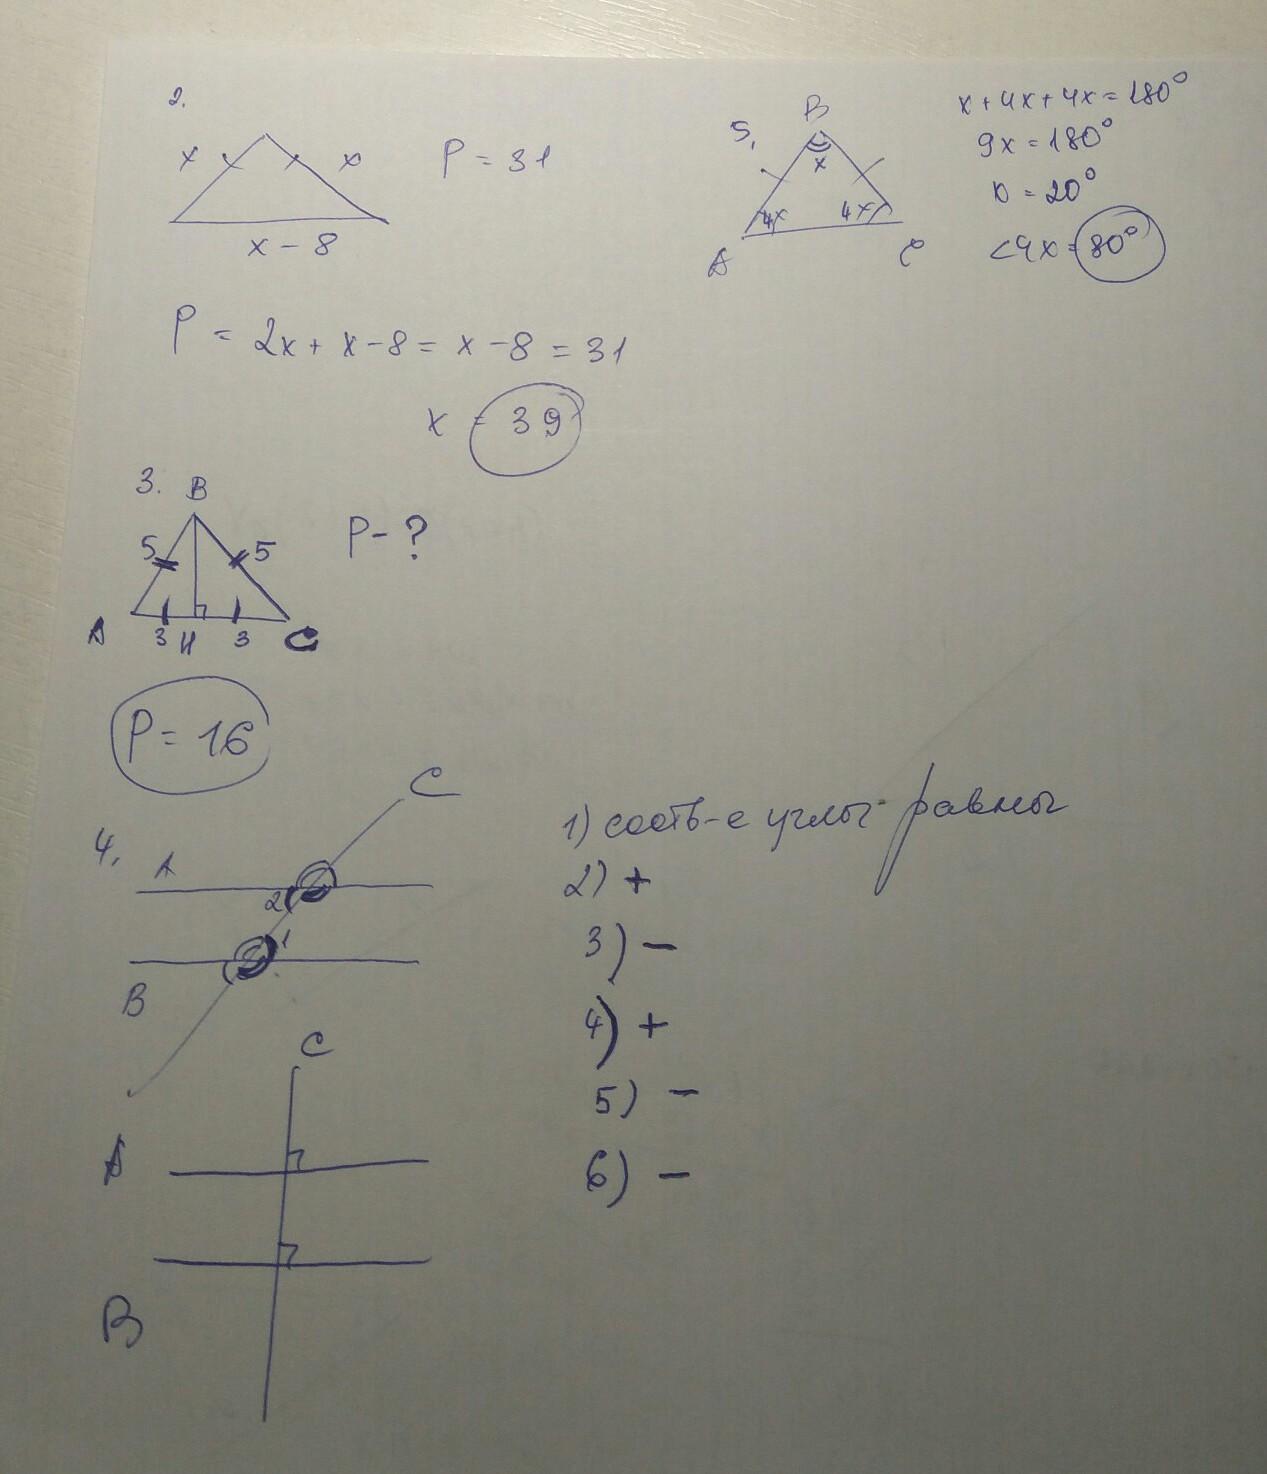 2.
x x P = 31
x - 8
P = 2x + x - 8 = x - 8 = 31
x = 39
5.
B
x
4x 4x
A C
x + 4x + 4x = 180°
9x = 180°
x = 20°
<4x = 80°
3. B
5 5 P - ?
A 3 H 3 C
P = 16
4.
C
A
2
1
B
C
A
B
1) соотв-е углы равны
2) +
3) -
4) +
5) -
6) -